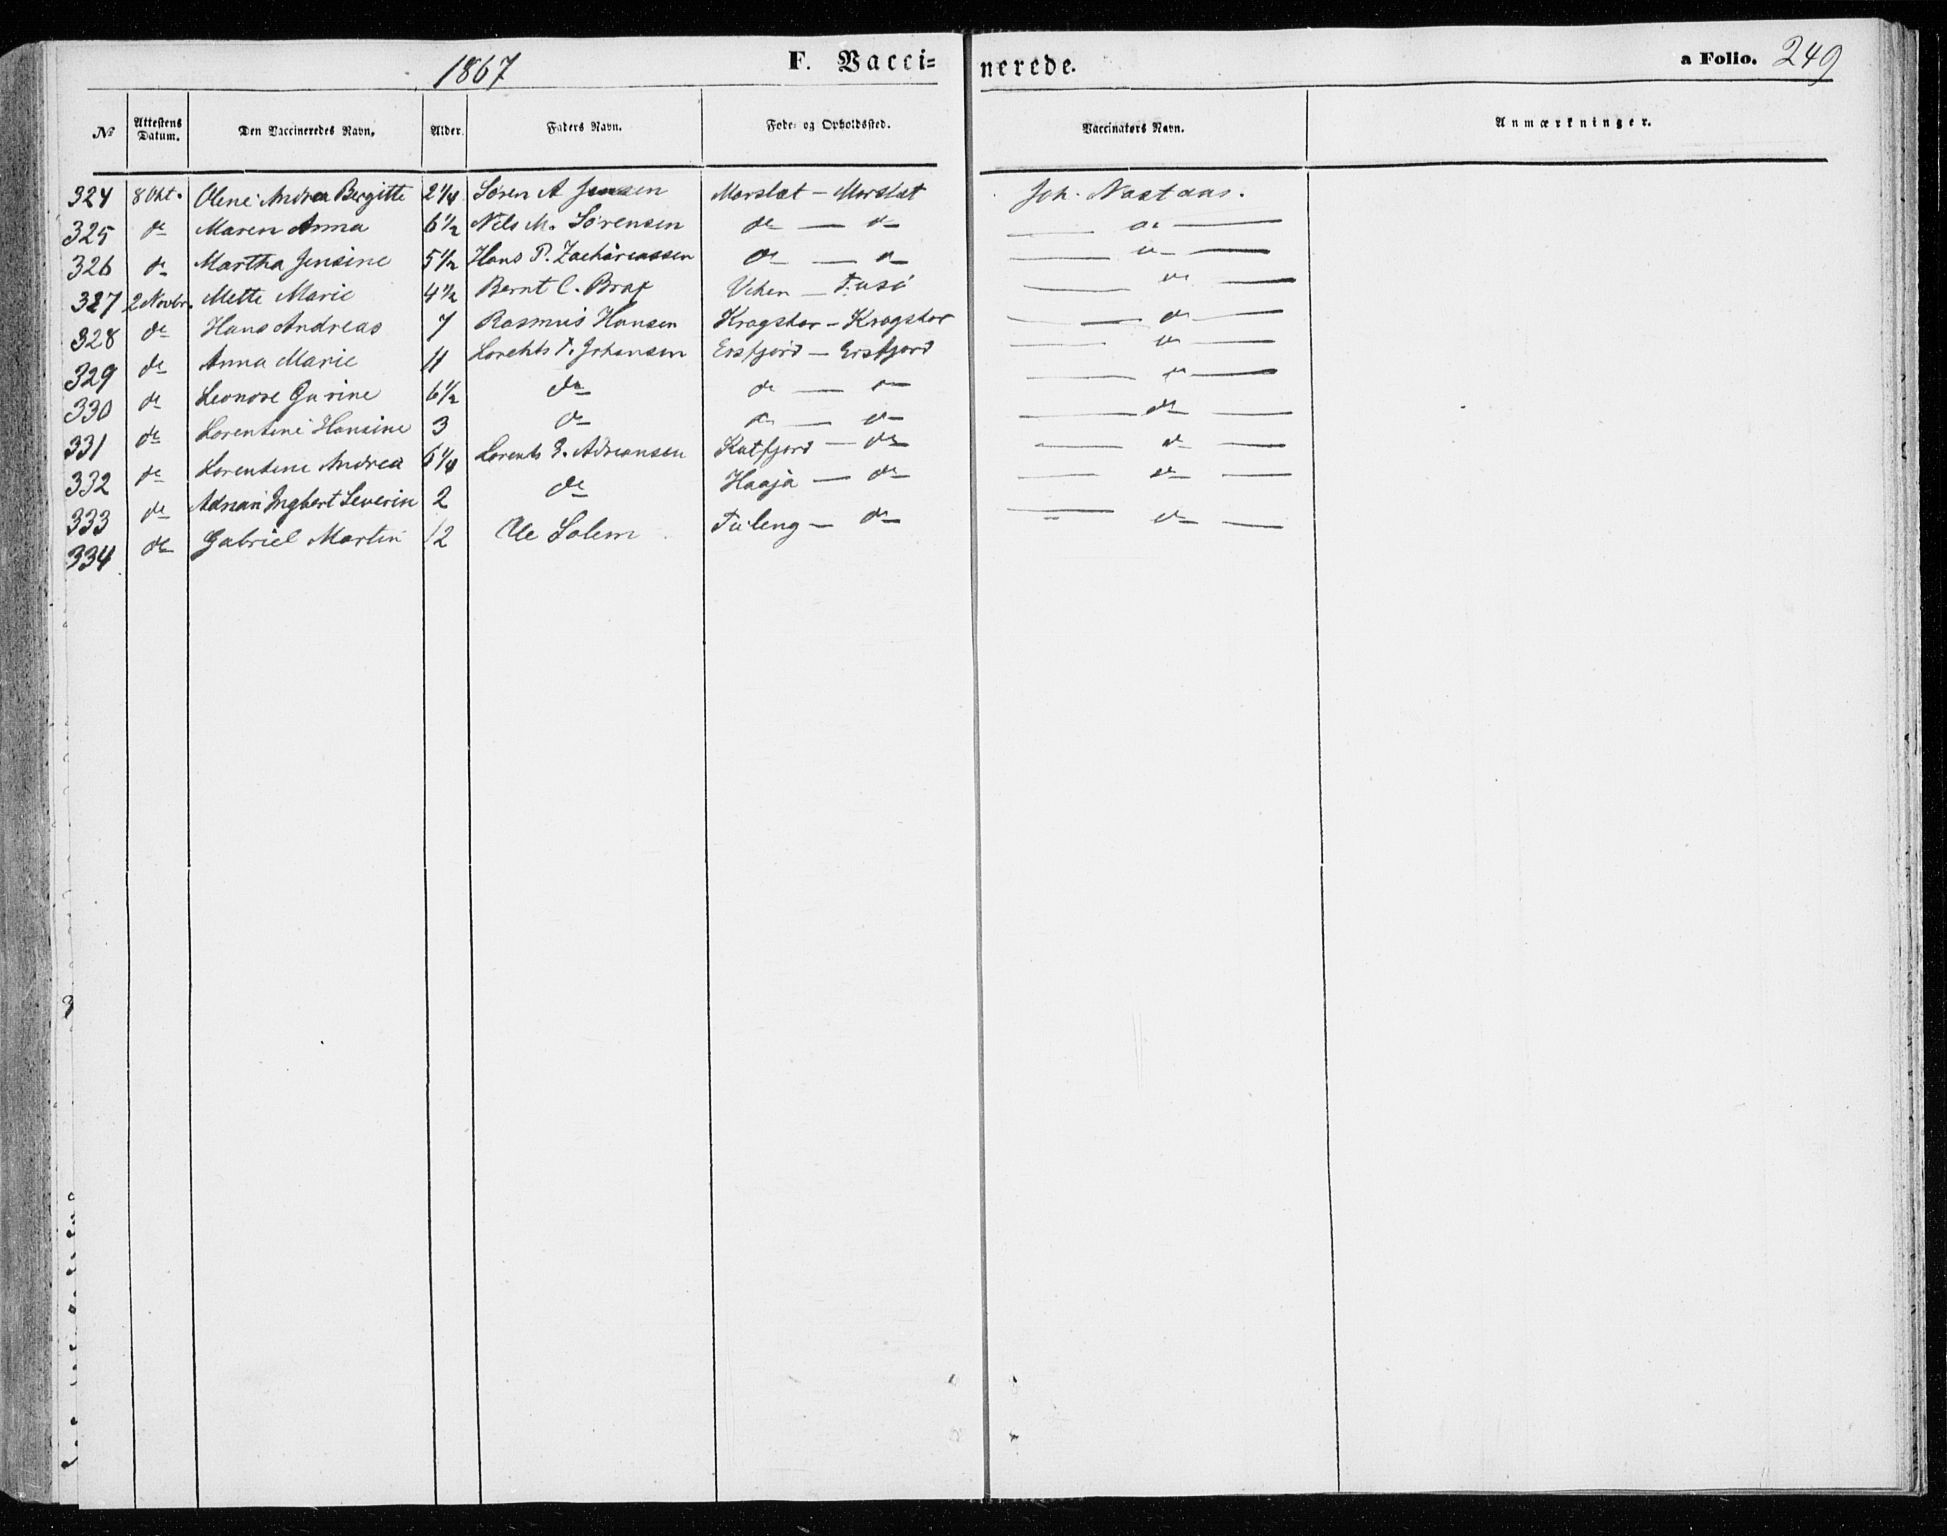 1867 F. Vacci= nerede. a Folio. 249
№ Attestens Datum. Den Vaccineredes Navn. Alder. Faders Navn. Føde- og Opholdssted. Vaccinatørs Navn. Anmærkninger.
324 8 Okt. Oline Andrea Bergitte 2 1/4 Søren A Jensen Morslet - Morslet Joh.
325 do Maren Anna 6 1/2 Nils M. Sørensen do — do — do —
326 do Martha Jensine 5 1/2 Hans P. Zachariassen do — do — do —
327 2 Novbr. Mette Marie 4 1/2 Bernt C. — do —
328 do Hans Andreas 7 Rasmus Hansen — do —
329 do Anna Marie 11 Johansen Ersfjord — Ersfjord — do —
330 do Leonore Gurine 6 1/2 do do — do — do —
331 do Lorentine Hansine 3 do do — do — do —
332 do Lorentine Andrea Lorents Adriansen Katfjord — do — do —
333 do Adrian Ingbert Severin 2 do Haaja — do — do —
334 do Gabriel Martin 12 Ole Solem — do — do —